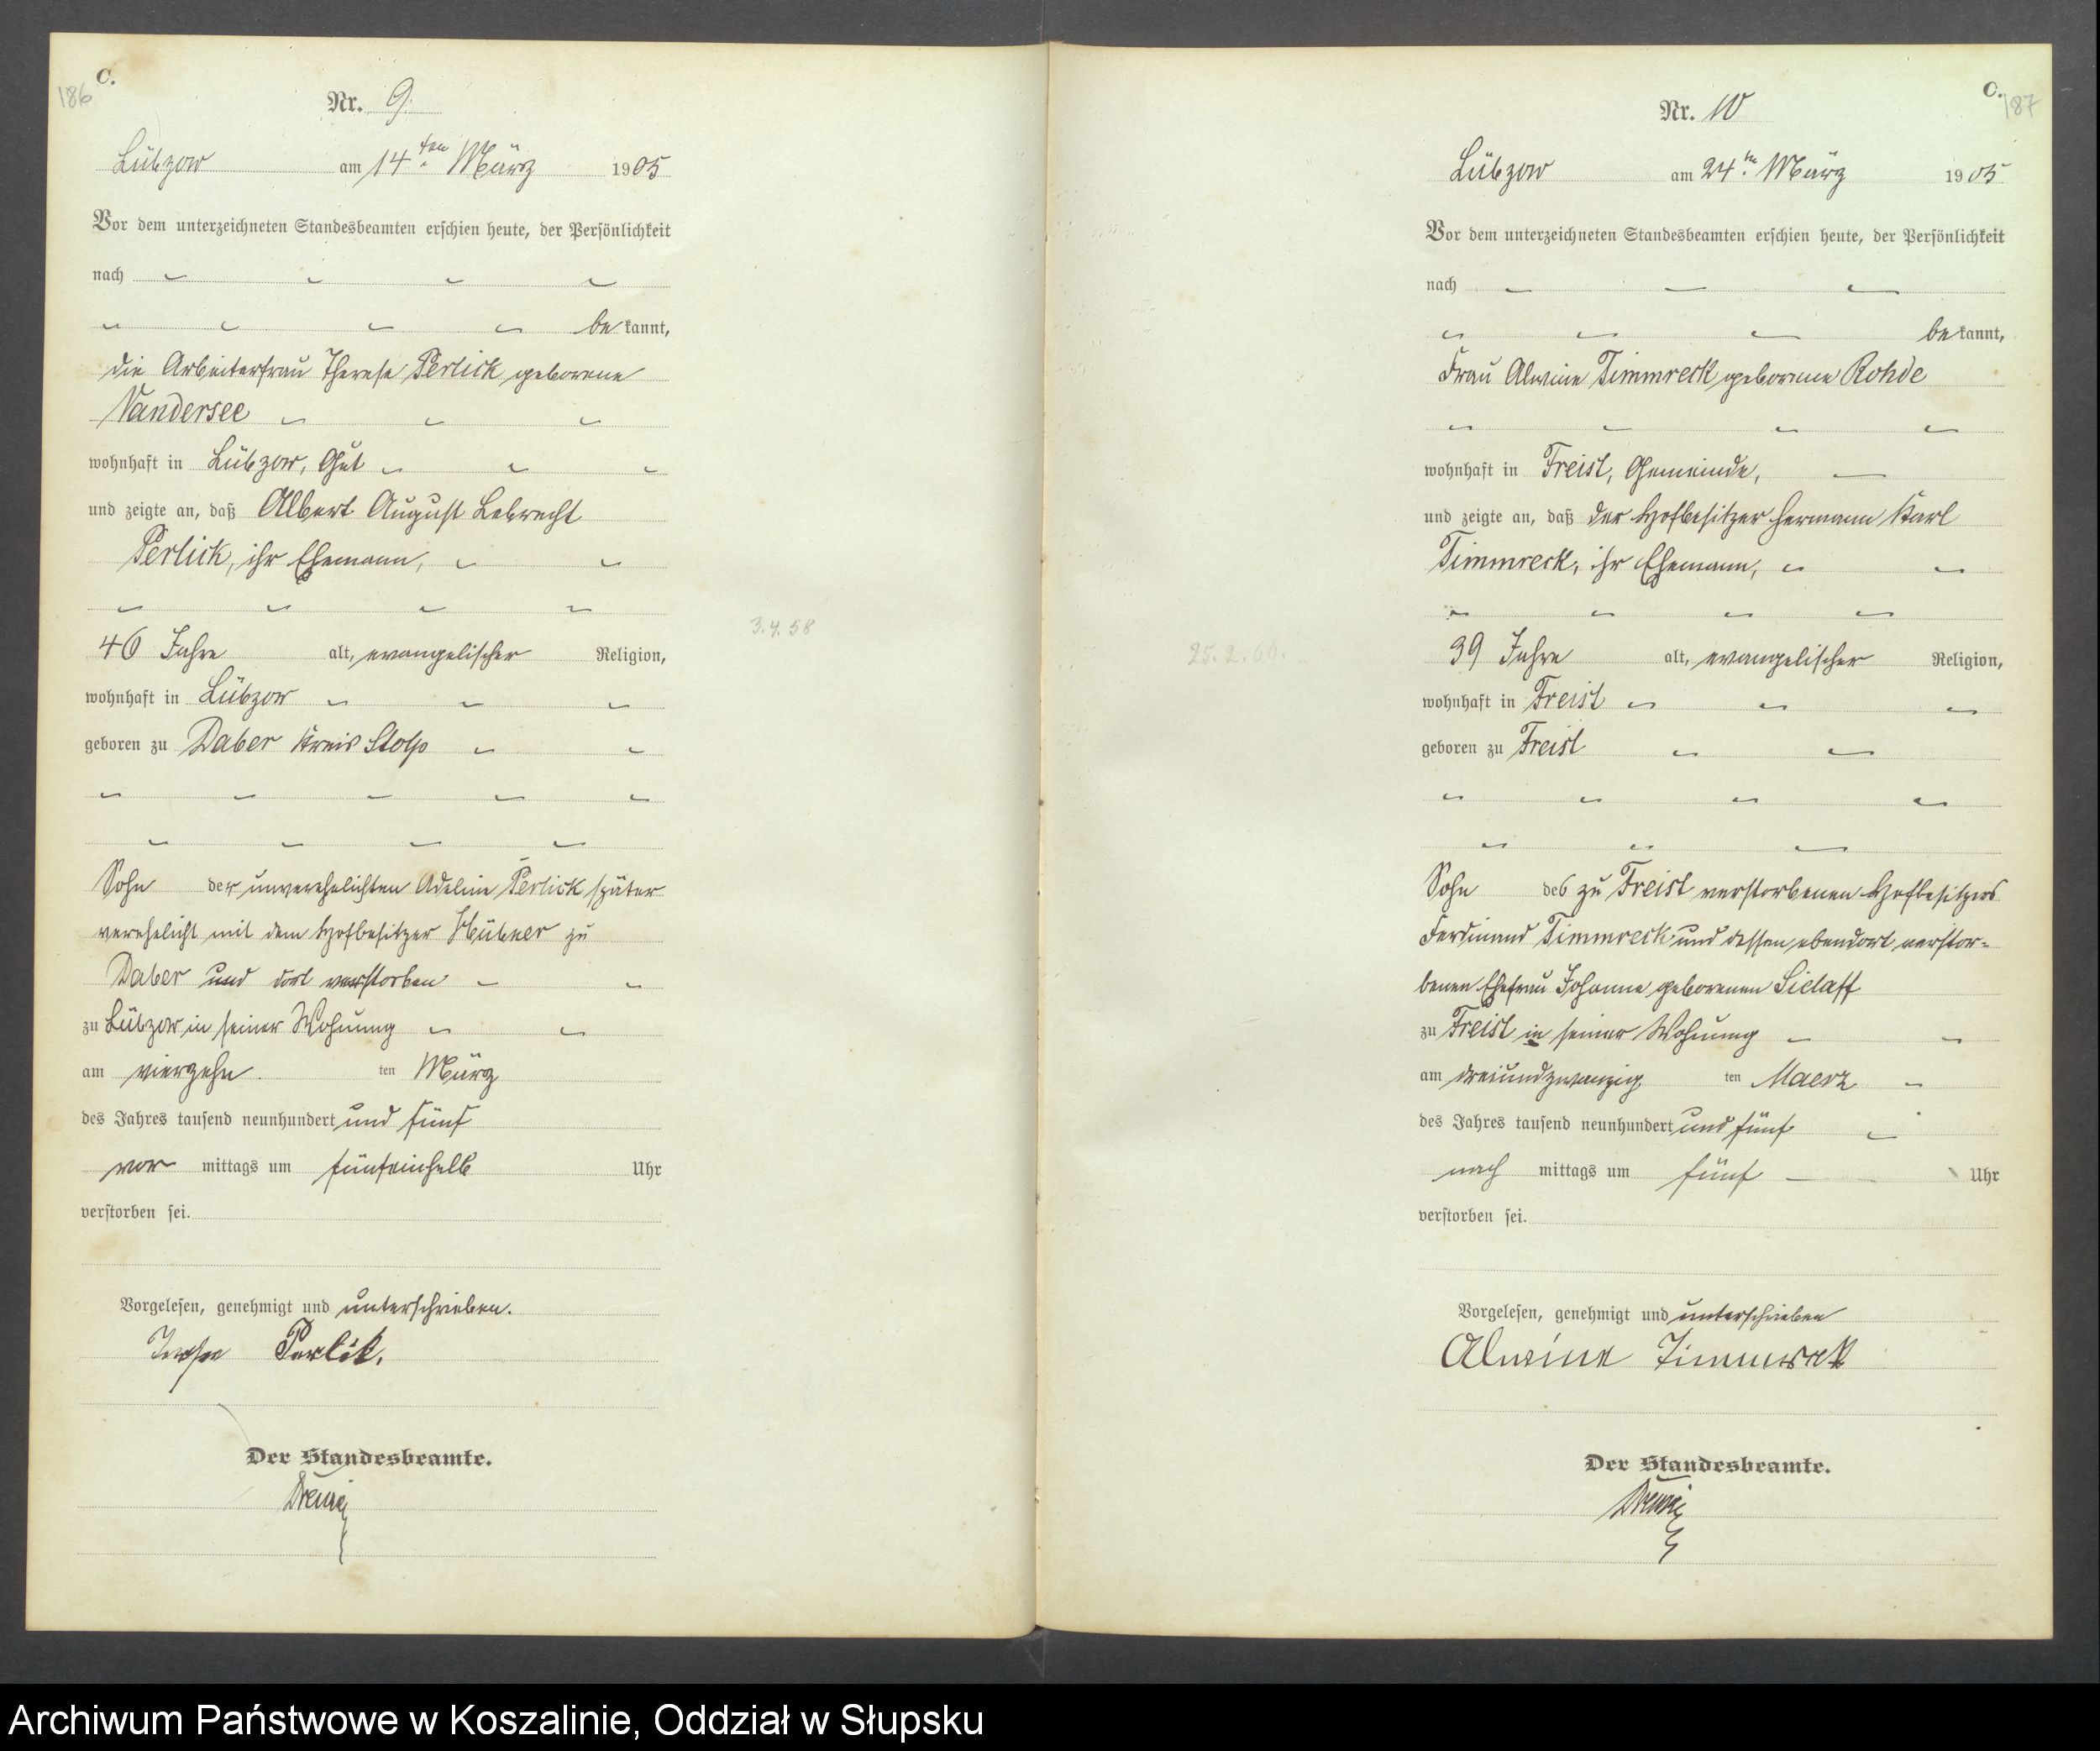 C.
186
Nr. 9.
Lübzow am 14ten März 1905
Vor dem unterzeichneten Standesbeamten erschien heute, der Persönlichkeit
nach
be kannt,
die Arbeiterfrau Therese Perlick geborene
Vandersee
wohnhaft in Lübzow, Gut
und zeigte an, daß Albert August Lebrecht
Perlick, ihr Ehemann,
46 Jahre alt, evangelischer Religion,
3.4.58
wohnhaft in Lübzow
geboren zu Daber Kreis Stolp
Sohn der unverehelichten Adeline Perlick später
verehelicht mit dem Hofbesitzer Hübner zu
Daber und dort verstorben
zu Lübzow in seiner Wohnung
am vierzehn ten März
des Jahres tausend neunhundert und fünf
vor mittags um fünfeinhalb Uhr
verstorben sei.
Vorgelesen, genehmigt und unterschrieben.
Perlik.
Der Standesbeamte.
C.
187
Nr. 10
Lübzow am 24tn März 1905
Vor dem unterzeichneten Standesbeamten erschien heute, der Persönlichkeit
nach
be kannt,
Frau Alwine Timmreck geborene Rohde
wohnhaft in Freist, Gemeinde,
und zeigte an, daß der Hofbesitzer Hermann Karl
Timmreck, ihr Ehemann,
25.2.66.
39 Jahre alt, evangelischer Religion,
wohnhaft in Freist
geboren zu Freist
Sohn des zu Freist verstorbenen Hofbesitzers
Ferdinand Timmreck und dessen ebendort verstor-
benen Ehefrau Johanne geborenen Sielaff
zu Freist in seiner Wohnung
am dreiundzwanzig ten Maerz
des Jahres tausend neunhundert und fünf
nach mittags um fünf Uhr
verstorben sei.
Vorgelesen, genehmigt und unterschrieben
Alwine Timmreck
Der Standesbeamte.
Archiwum Państwowe w Koszalinie, Oddział w Słupsku